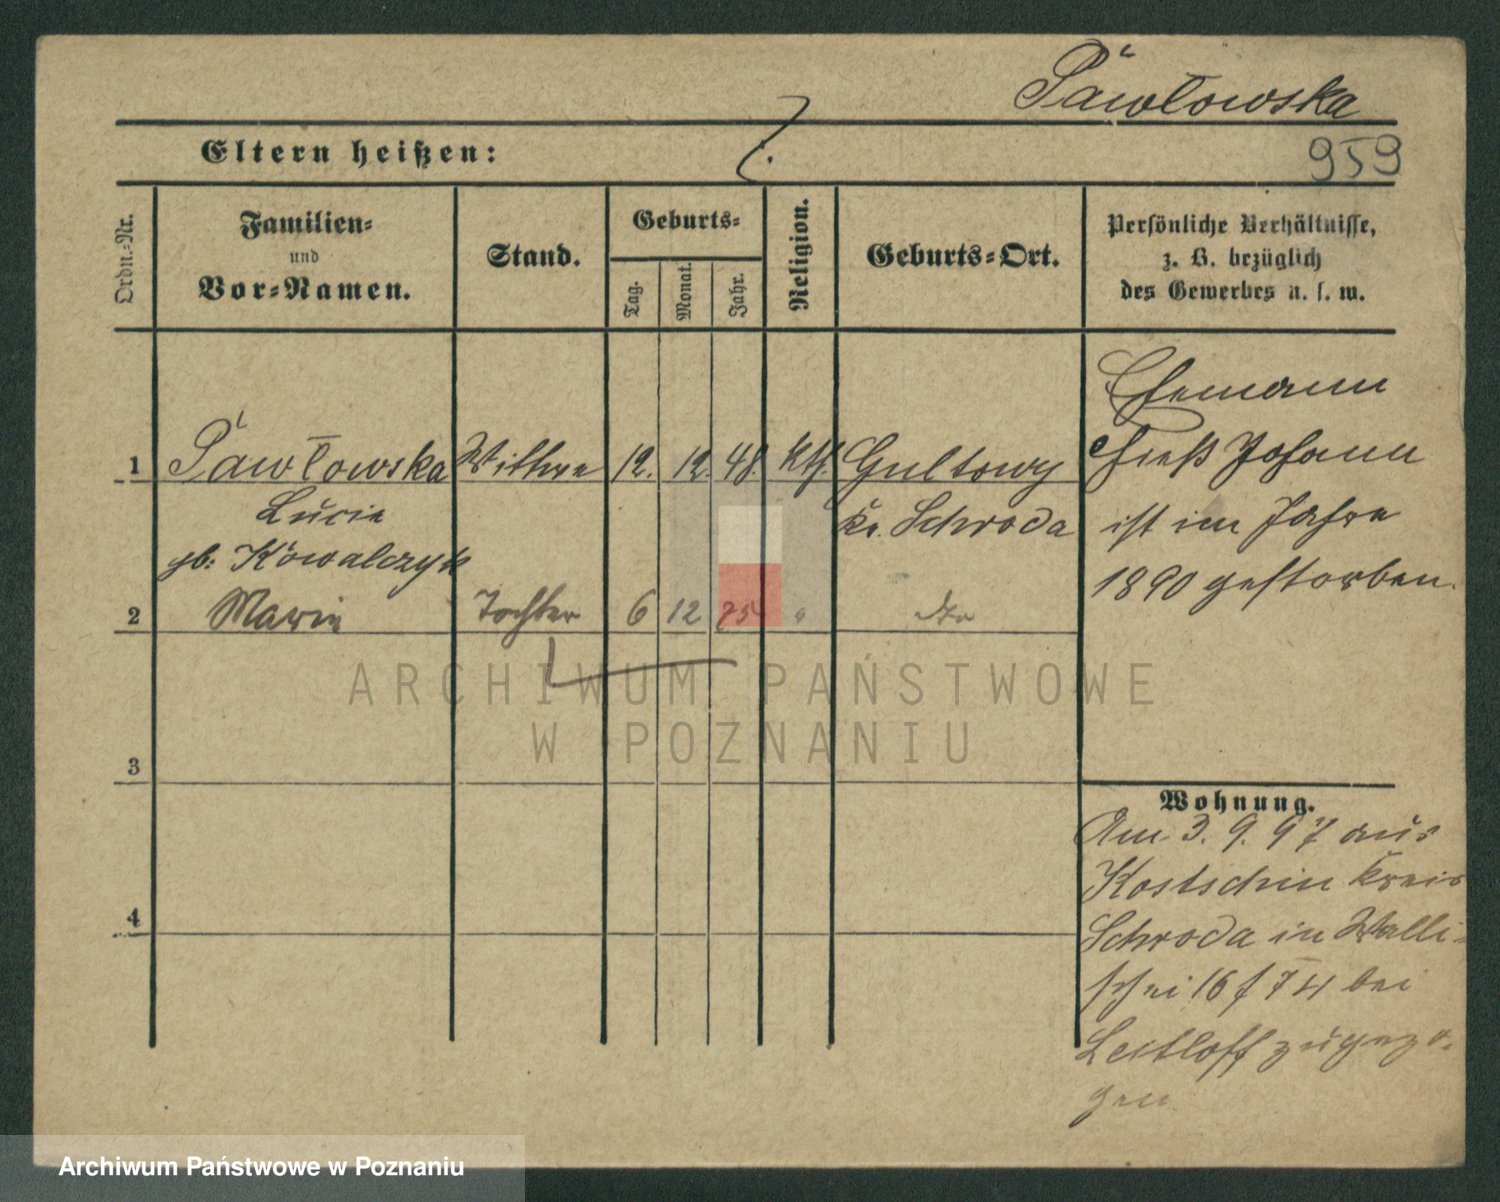 Pawłowska
Eltern heißen: ?
959
Ordn.-Nr.
Familien-
und
Vor-Namen.
Stand.
Geburts-
Tag.
Monat.
Jahr.
Religion.
Geburts-Ort.
Persönliche Verhältnisse,
z. B. bezüglich
des Gewerbes u. s. w.
1 Pawłowska Wittwe 12. 12. 48. kth. Gultowy
Lucie Kr. Schroda
gb: Kowalczyk
2 Marie Tochter 6 12 75 " do
3
4
Ehemann
hieß Johann
ist im Jahre
1890 gestorben.
Wohnung.
Am 3. 9. 97 aus
Kostschin Kreis
Schroda in Walli-
schei 16 / 74 bei
Leitloff zugezo-
gen
ARCHIWUM PAŃSTWOWE
W POZNANIU
Archiwum Państwowe w Poznaniu